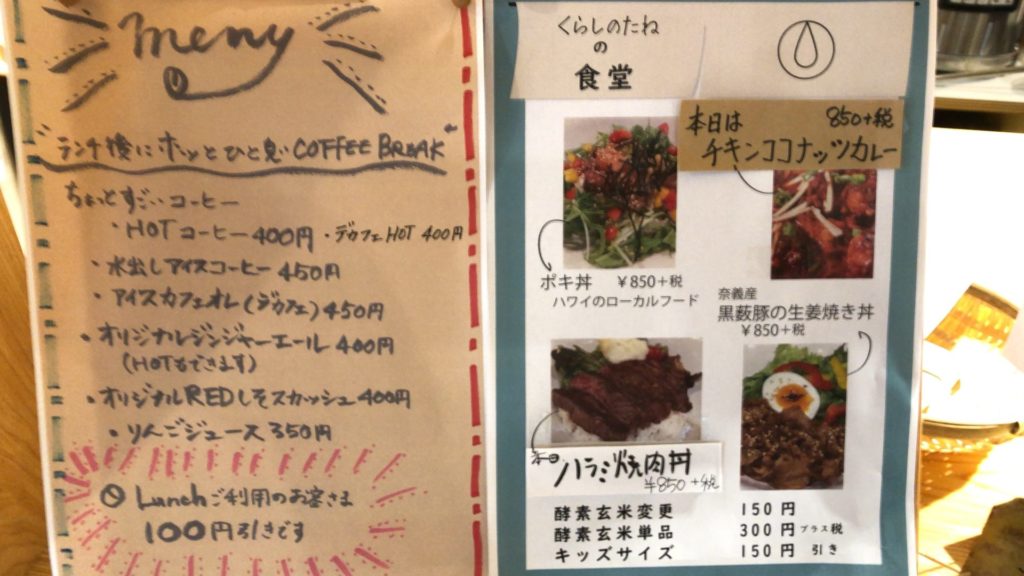 menu
"ランチ後にホッとひと息COFFEE BREAK"
ちょっとすごいコーヒー
・HOTコーヒー400円 ・デカフェHOT 400円
・水出しアイスコーヒー 450円
・アイスカフェオレ(デカフェ)450円
・オリジナルジンジャーエール 400円
(HOTもできます)
・オリジナルREDしそスカッシュ400円
・りんごジュース350円
Lunchご利用のお客さま
100円引きです
くらしのたね
の
食堂
本日は 850+税
チキンココナッツカレー
ポキ丼 ¥850+税
ハワイのローカルフード
奈義産
黒薮豚の生姜焼き丼
¥850+税
本日
ハラミ焼肉丼
¥850+税
酵素玄米変更 150円
酵素玄米単品 300円プラス税
キッズサイズ 150円引き